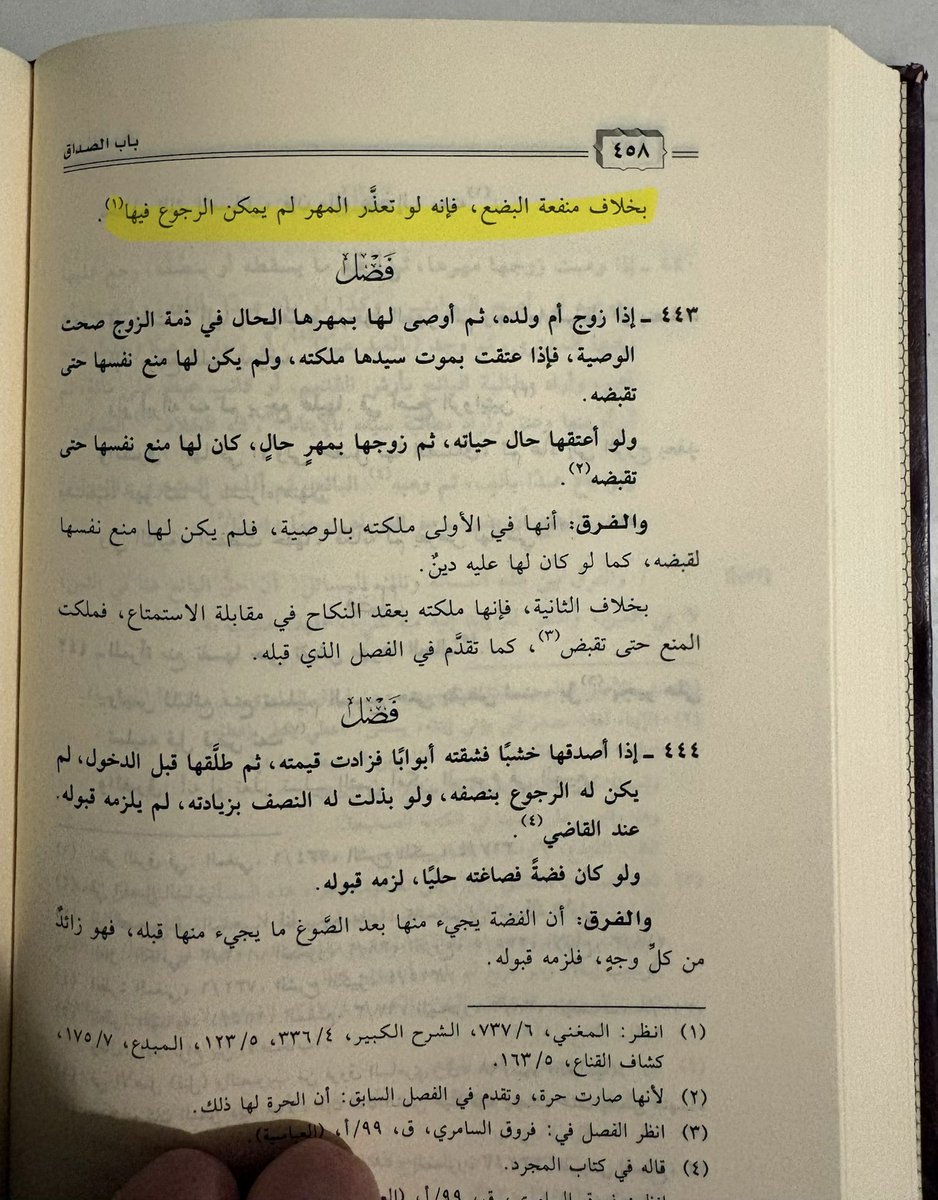 باب الصداق
٤٥٨
بخلاف منفعة البضع، فإنه لو تعذَّر المهر لم يمكن الرجوع فيها(١).
فَصْل
٤٤٣ ـ إذا زوج أم ولده، ثم أوصى لها بمهرها الحال في ذمة الزوج صحت
الوصية، فإذا عتقت بموت سيدها ملكته، ولم يكن لها منع نفسها حتى
تقبضه.
ولو أعتقها حال حياته، ثم زوجها بمهرٍ حالٍ، كان لها منع نفسها حتى
تقبضه(٢).
والفرق: أنها في الأولى ملكته بالوصية، فلم يكن لها منع نفسها
لقبضه، كما لو كان لها عليه دينٌ.
بخلاف الثانية، فإنها ملكته بعقد النكاح في مقابلة الاستمتاع، فملكت
المنع حتى تقبض(٣)، كما تقدَّم في الفصل الذي قبله.
فَصْل
٤٤٤ ـ إذا أصدقها خشبًا فشقته أبوابًا فزادت قيمته، ثم طلَّقها قبل الدخول، لم
يكن له الرجوع بنصفه، ولو بذلت له النصف بزيادته، لم يلزمه قبوله.
عند القاضي(٤).
ولو كان فضةً فصاغته حليًا، لزمه قبوله.
والفرق: أن الفضة يجيء منها بعد الصَّوغ ما يجيء منها قبله، فهو زائدٌ
من كلِّ وجهٍ، فلزمه قبوله.
(١) انظر: المغني، ٦/٧٣٧، الشرح الكبير، ٤/٣٣٦، ٥/١٢٣، المبدع، ٧/١٧٥،
كشاف القناع، ٥/١٦٣.
(٢) لأنها صارت حرة، وتقدم في الفصل السابق: أن الحرة لها ذلك.
(٣) انظر الفصل في: فروق السامري، ق، ٩٩/أ، (العباسية).
(٤) قاله في كتاب المجرد.